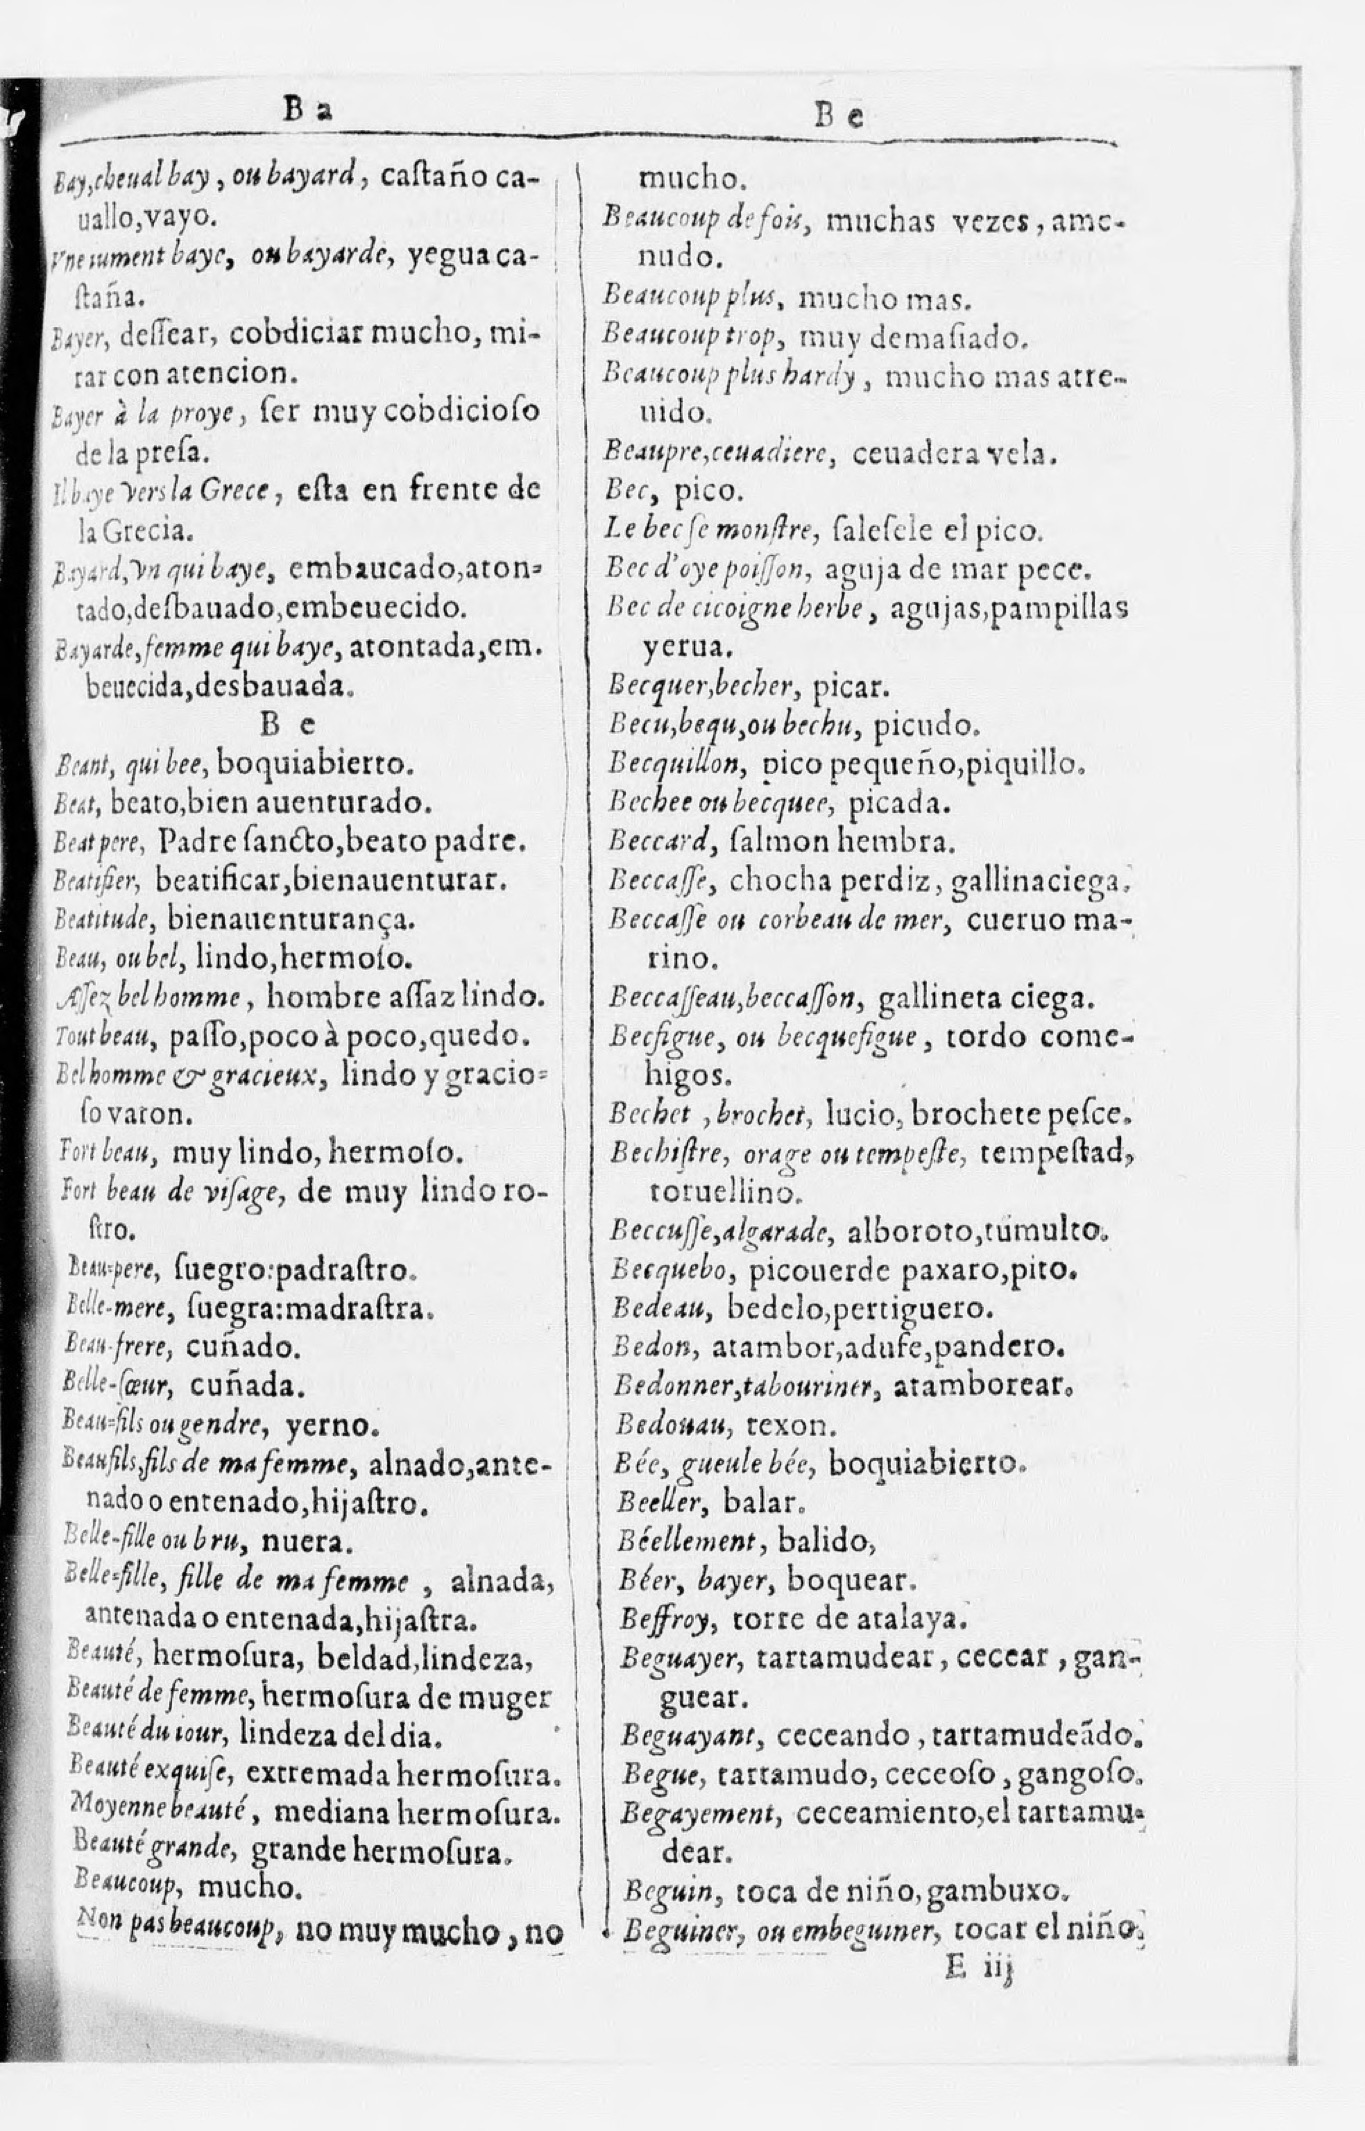 B a
Bay, cheual bay, ou bayard, caſtaño ca-
uallo, vayo.
Vne iument baye, ou bayarde, yegua ca-
ſtaña.
Bayer, deſſear, cobdiciar mucho, mi-
rar con atencion.
Bayer à la proye, ſer muy cobdicioſo
de la preſa.
Il baye vers la Grece, eſta en frente de
la Grecia.
Bayard, vn qui baye, embaucado, aton=
tado, deſbauado, embeuecido.
Bayarde, femme qui baye, atontada, em.
beuecida, desbauada.
B e
Beant, qui bee, boquiabierto.
Beat, beato, bien auenturado.
Beat pere, Padre ſancto, beato padre.
Beatifier, beatificar, bienauenturar.
Beatitude, bienauenturança.
Beau, ou bel, lindo, hermoſo.
Aſſez bel homme, hombre aſſaz lindo.
Tout beau, paſſo, poco à poco, quedo.
Bel homme & gracieux, lindo y gracio=
ſo varon.
Fort beau, muy lindo, hermoſo.
Fort beau de viſage, de muy lindo ro-
ſtro.
Beau=pere, ſuegro: padraſtro.
Belle-mere, ſuegra: madraſtra.
Beau-frere, cuñado.
Belle-ſœur, cuñada.
Beau=fils ou gendre, yerno.
Beaufils, fils de ma femme, alnado, ante-
nado o entenado, hijaſtro.
Belle-fille ou bru, nuera.
Belle=fille, fille de ma femme, alnada,
antenada o entenada, hijaſtra.
Beauté, hermoſura, beldad, lindeza,
Beauté de femme, hermoſura de muger
Beauté du iour, lindeza del dia.
Beauté exquiſe, extremada hermoſura.
Moyenne beauté, mediana hermoſura.
Beauté grande, grande hermoſura.
Beaucoup, mucho.
Non pas beaucoup, no muy mucho, no
B e
mucho.
Beaucoup de fois, muchas vezes, ame-
nudo.
Beaucoup plus, mucho mas.
Beaucoup trop, muy demaſiado.
Beaucoup plus hardy, mucho mas atre-
uido.
Beaupre, ceuadiere, ceuadera vela.
Bec, pico.
Le bec ſe monſtre, ſaleſele el pico.
Bec d'oye poiſſon, aguja de mar pece.
Bec de cicoigne herbe, agujas, pampillas
yerua.
Becquer, becher, picar.
Becu, bequ, ou bechu, picudo.
Becquillon, pico pequeño, piquillo.
Bechee ou becquee, picada.
Beccard, ſalmon hembra.
Beccaſſe, chocha perdiz, gallinaciega.
Beccaſſe ou corbeau de mer, cueruo ma-
rino.
Beccaſſeau, beccaſſon, gallineta ciega.
Becfigue, ou becquefigue, tordo come-
higos.
Bechet, brochet, lucio, brochete peſce.
Bechiſtre, orage ou tempeſte, tempeſtad,
toruellino.
Beccuſſe, algarade, alboroto, tumulto.
Becquebo, picouerde paxaro, pito.
Bedeau, bedelo, pertiguero.
Bedon, atambor, adufe, pandero.
Bedonner, tabouriner, atamborear.
Bedouau, texon.
Bée, gueule bée, boquiabierto.
Beeller, balar.
Béellement, balido,
Béer, bayer, boquear.
Beffroy, torre de atalaya.
Beguayer, tartamudear, cecear, gan-
guear.
Beguayant, ceceando, tartamudeãdo.
Begue, tartamudo, ceceoſo, gangoſo.
Begayement, ceceamiento, el tartamu=
dear.
Beguin, toca de niño, gambuxo.
Beguiner, ou embeguiner, tocar el niño.
E iij